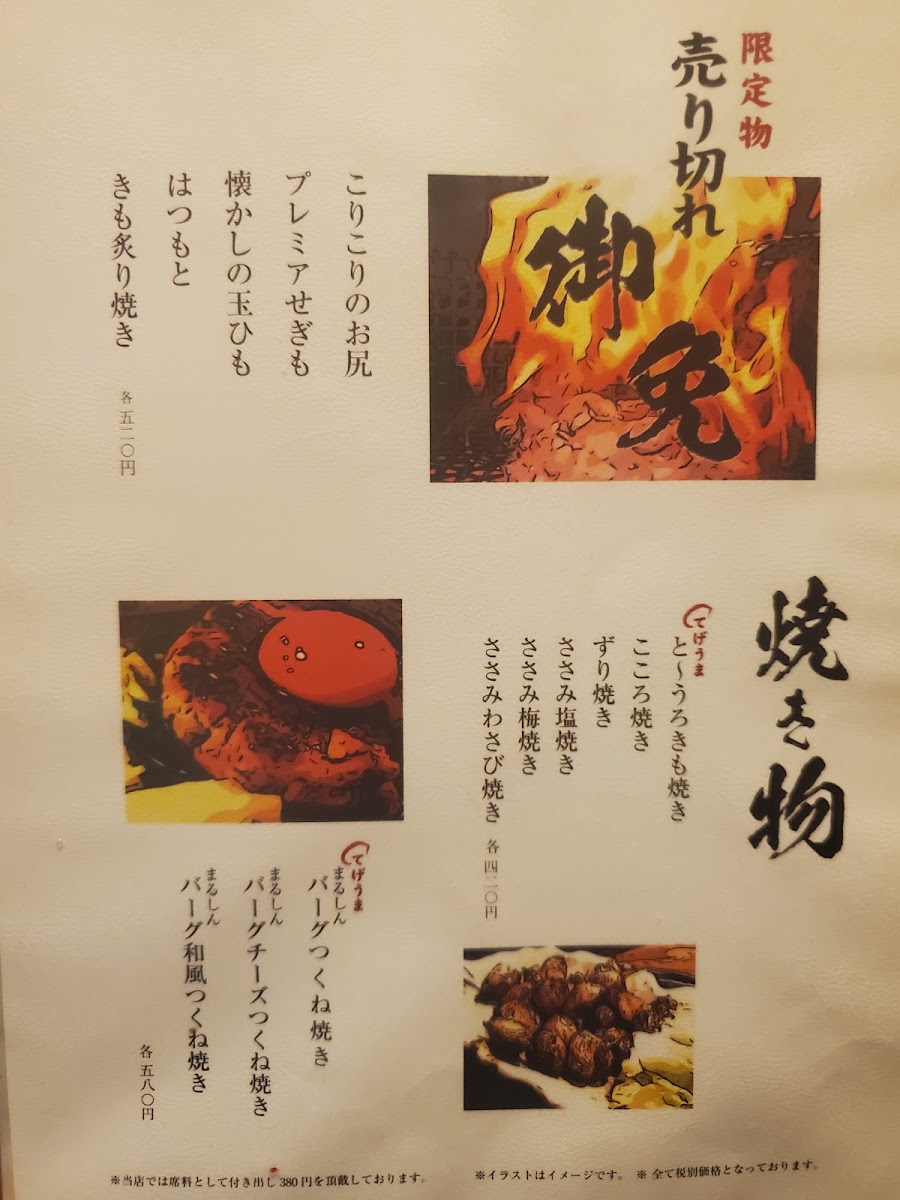 限定物
売り切れ
御免
こりこりのお尻
プレミアせぎも
懐かしの玉ひも
はつもと
きも炙り焼き
各五二〇円
焼き物
てげうま
と〜うろきも焼き
こころ焼き
ずり焼き
ささみ塩焼き
ささみ梅焼き
ささみわさび焼き
各四二〇円
てげうま
まるしん
バーグつくね焼き
まるしん
バーグチーズつくね焼き
まるしん
バーグ和風つくね焼き
各五八〇円
※イラストはイメージです。 ※全て税別価格となっております。
※当店では席料として付き出し380円を頂戴しております。